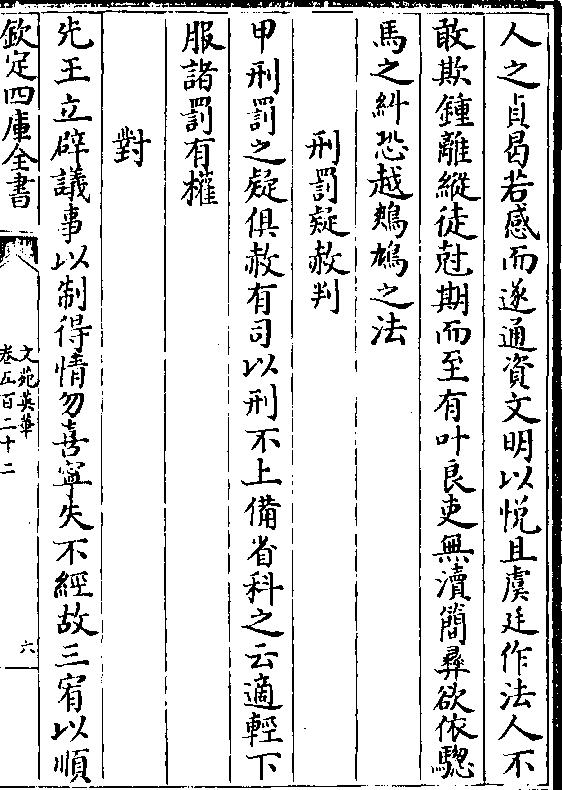 人之貞曷若感而遂通資文明以悅且虞廷作法人不
敢欺鍾離縱徒尅期而至有叶良吏無瀆簡彞欲依驄
馬之糾恐越鷞鳩之法
刑罰疑赦判
甲刑罰之疑俱赦有司以刑不上備省科之云適輕下
服諸罰有權
對
先王立辟議事以制得情勿喜寧失不經故三宥以順
欽定四庫全書
文苑英華
卷五百二十二
六